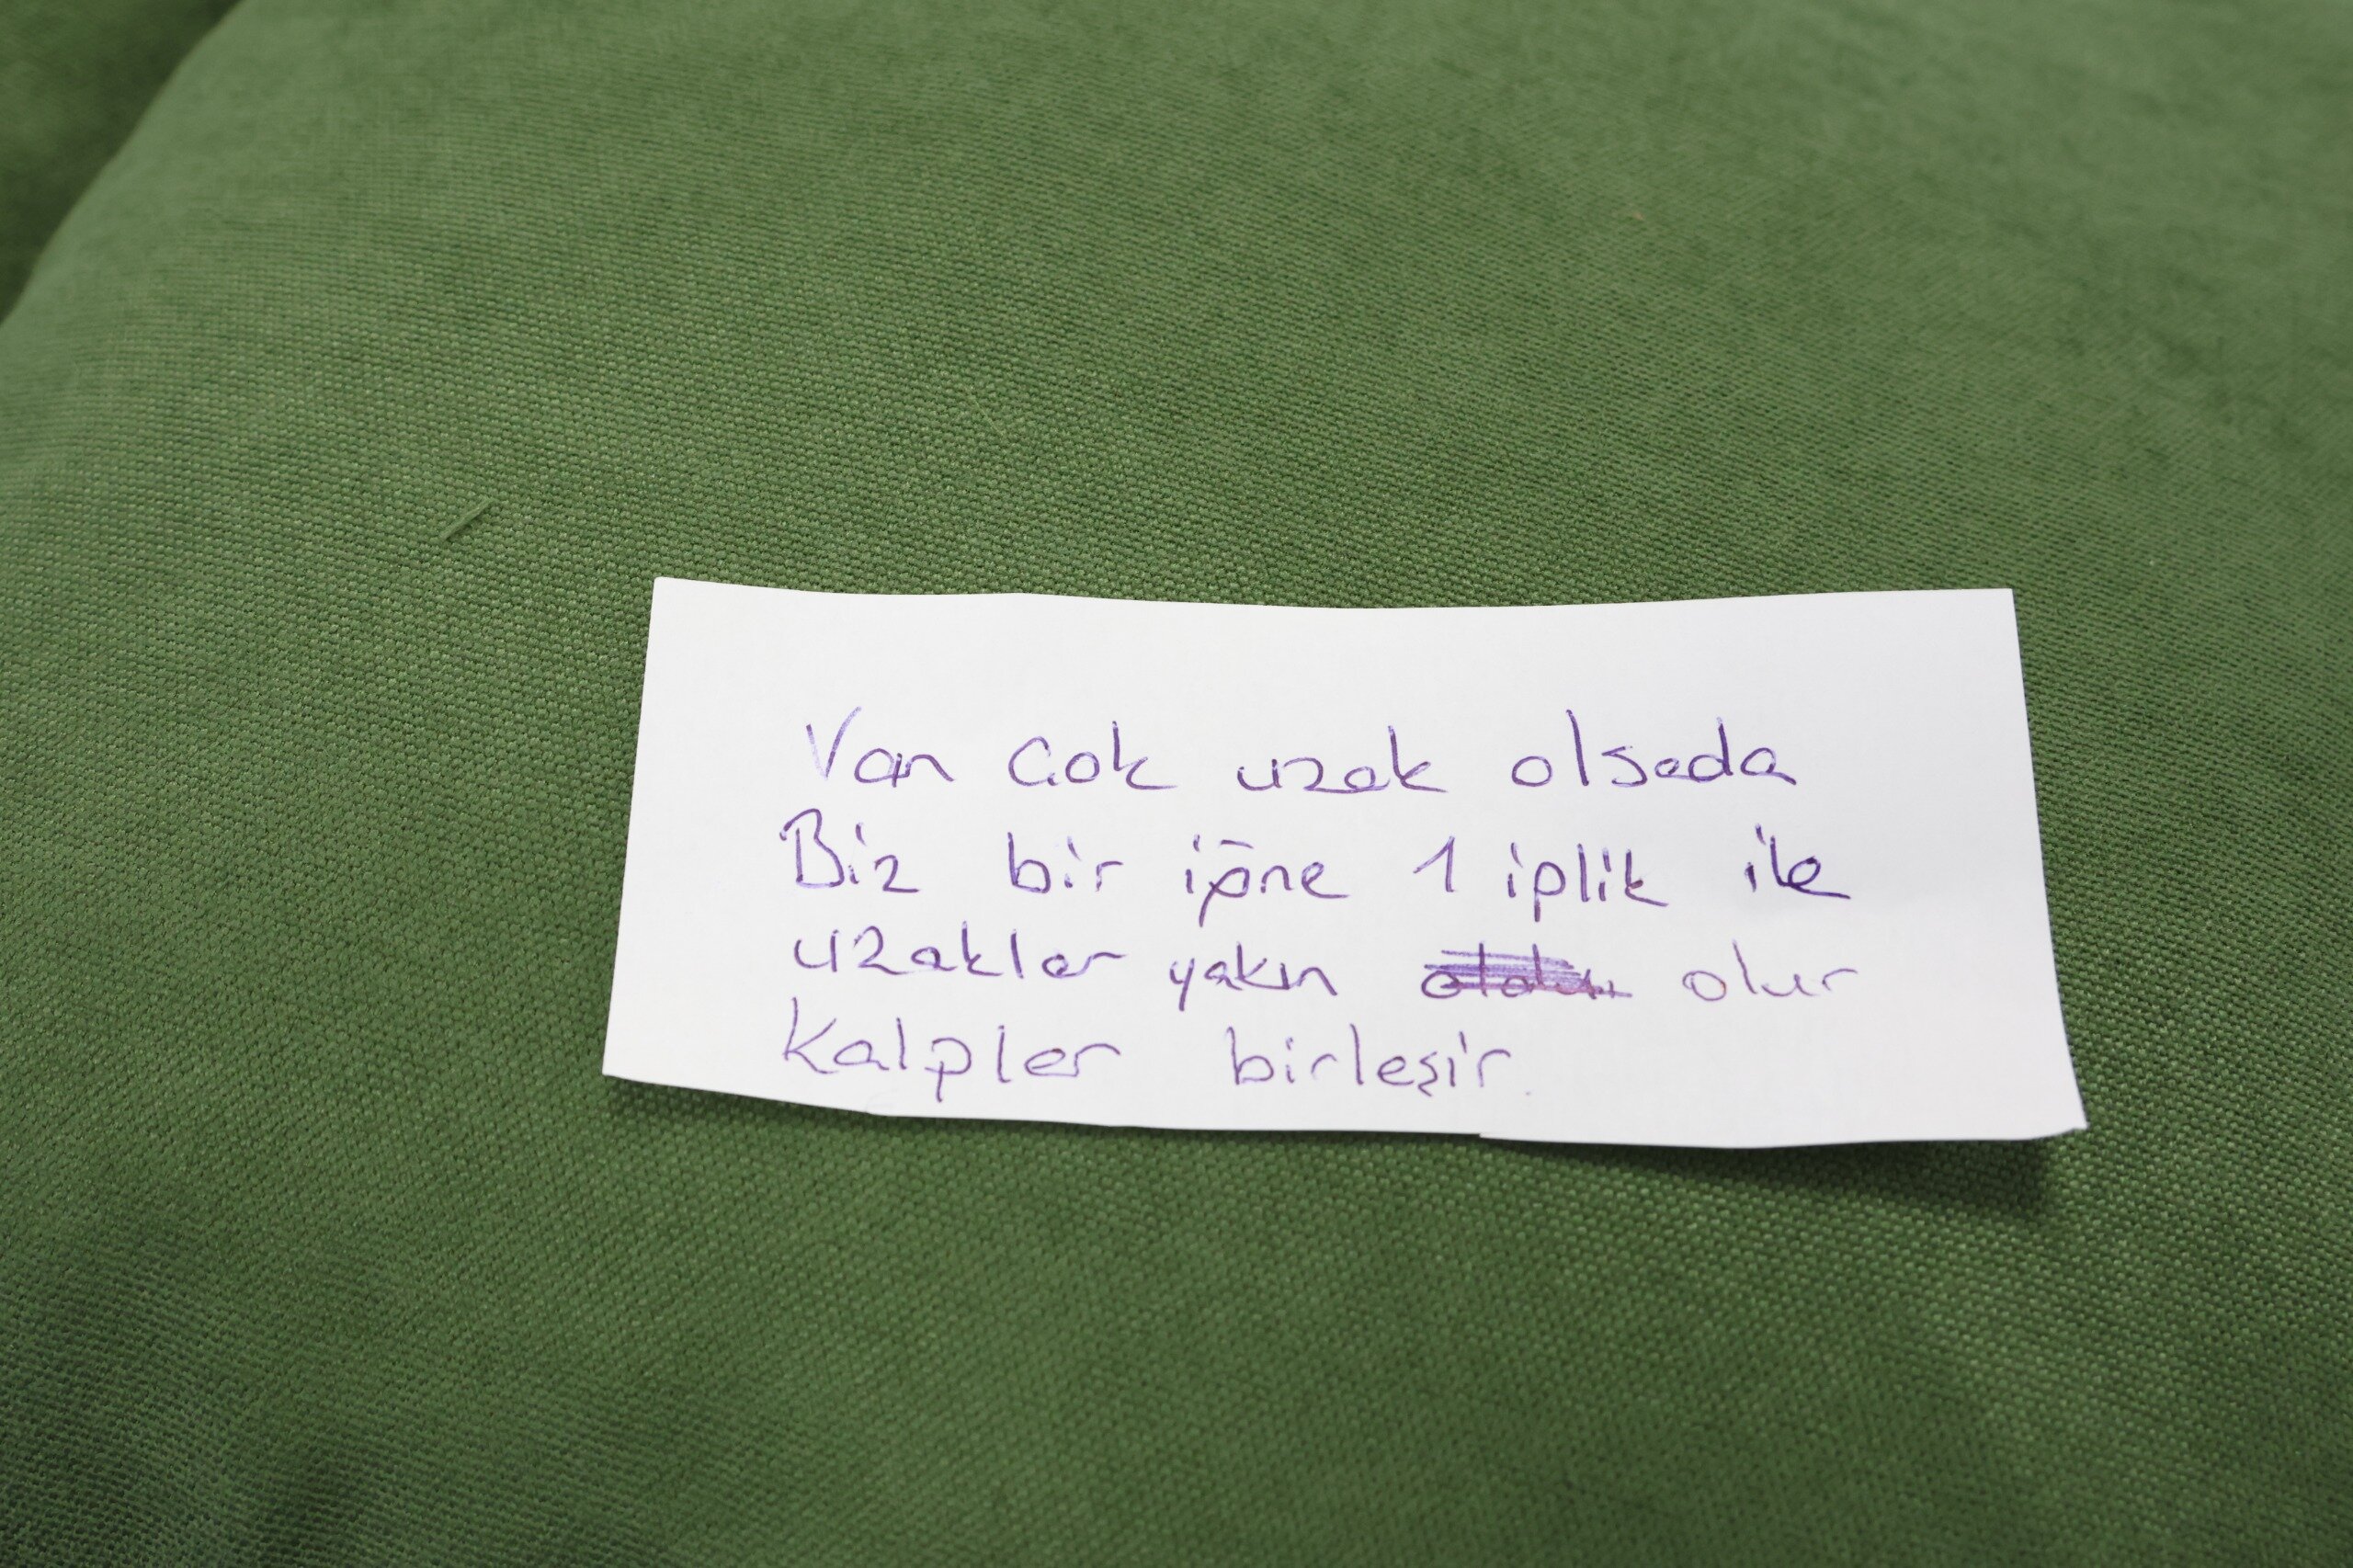 Van çok uzak olsada
Biz bir iğne 1 iplik ile
uzaklar yakın olur
Kalpler birleşir.